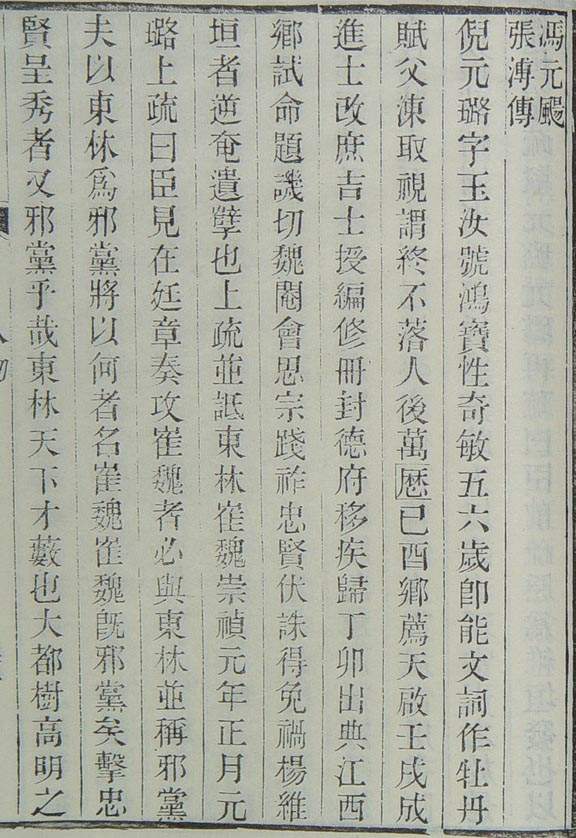 馮元颺
張溥傳
倪元璐字玉汝號鴻寶性奇敏五六歲卽能文詞作牡丹
賦父涷取視謂終不落人後萬曆己酉鄉薦天啟壬戌成
進士改庶吉士授編修冊封德府移疾歸丁卯出典江西
鄉試命題譏切魏閹會思宗踐祚忠賢伏誅得免禍楊維
垣者逆奄遺孽也上疏並詆東林崔魏崇禎元年正月元
璐上疏曰臣見在廷章奏攻崔魏者必與東林並稱邪黨
夫以東林爲邪黨將以何者名崔魏崔魏旣邪黨矣擊忠
賢呈秀者又邪黨乎哉東林天下才藪也大都樹高明之